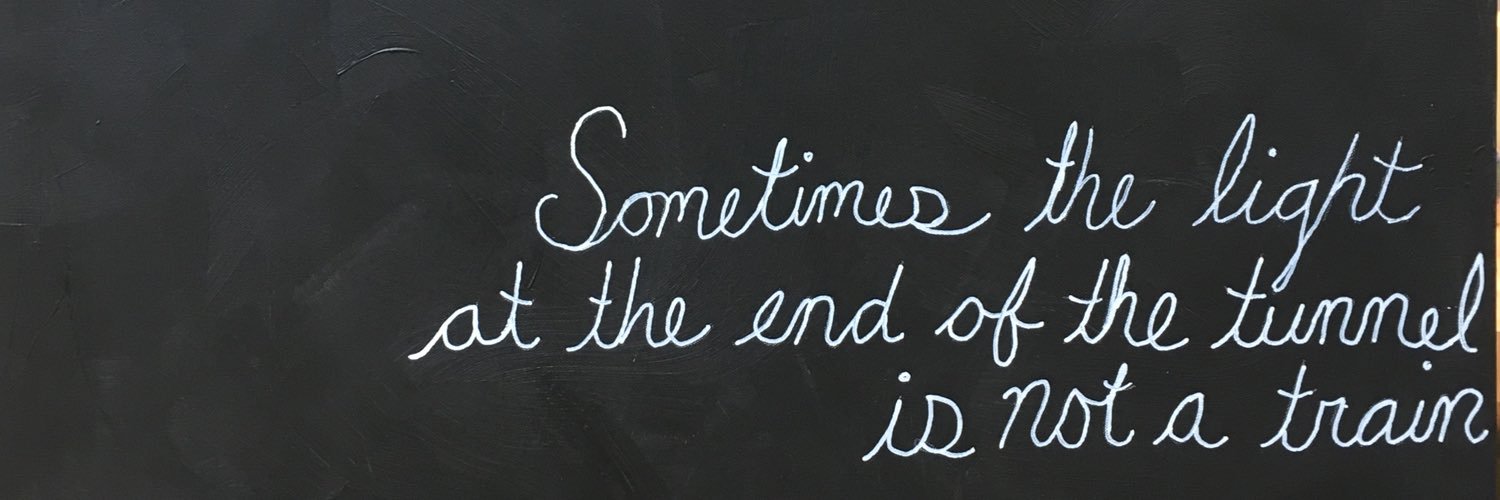 Sometimes the light
at the end of the tunnel
is not a train